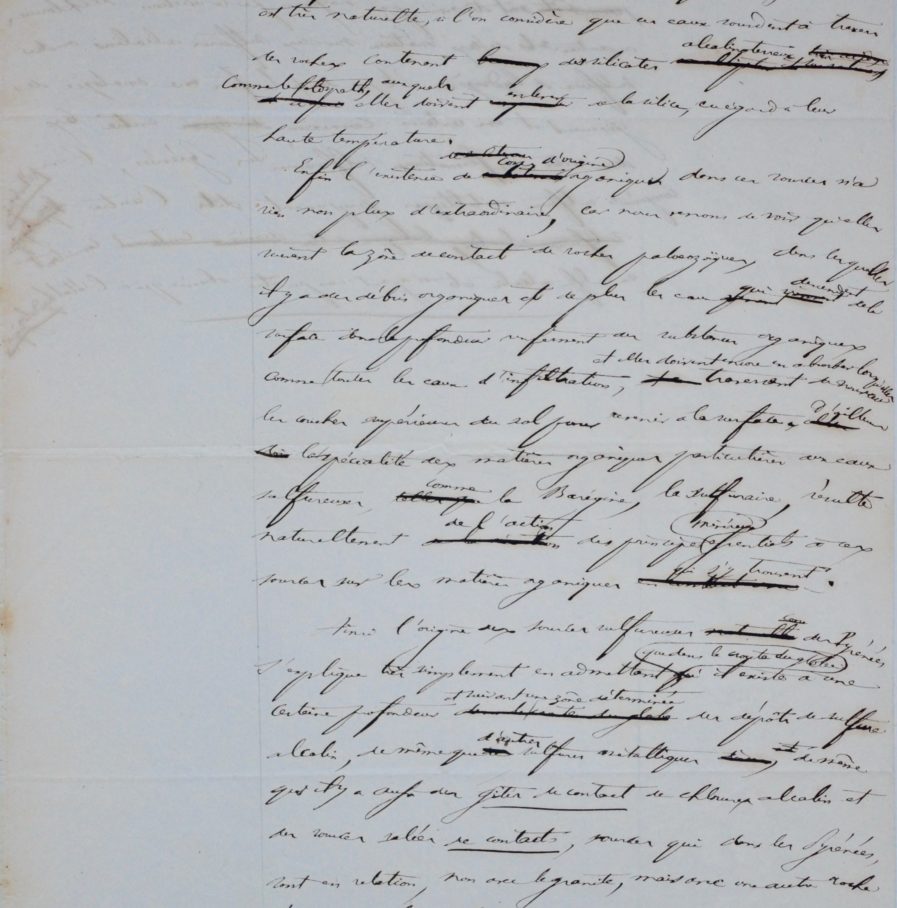 est très naturelle, si l'on considère que ces eaux sourdent à travers
des roches contenant des silicates alcalino terreux
comme le feldspath, auxquels elles doivent enlever de la silice, eu égard à leur
haute température.
Enfin l'existence de corps d'origine organique dans ces sources n'a
rien non plus d'extraordinaire, car nous venons de voir qu'elles
suivent la zône de contact de roches paléozoïques, dans lesquelles
il y a des débris organiques et de plus les eaux qui descendent de la
surface dans la profondeur renferment des substances organiques
comme toutes les eaux d'infiltration, et elles doivent encore en absorber lorsqu'elles
traversent de nouveau
les couches supérieures du sol pour revenir à la surface, d'ailleurs
la spécialité des matières organiques particulières aux eaux
sulfureuses, comme la Barégine, la sulfuraire, résulte
naturellement de l'action des principes minéraux essentiels à ces
sources sur les matières organiques qui s'y trouvent.
Ainsi l'origine des sources sulfureuses des Pyrénées,
s'explique très simplement en admettant que dans la croute du globe il existe à une
certaine profondeur et suivant une zône déterminée des dépôts de sulfure
alcalin, de même que d'autres sulfures métalliques et de même
qu'il y a aussi des gites de contact de chlorures alcalins et
des sources salées de contacts, sources qui dans les Pyrénées,
sont en relation, non avec le granite, mais avec une autre roche